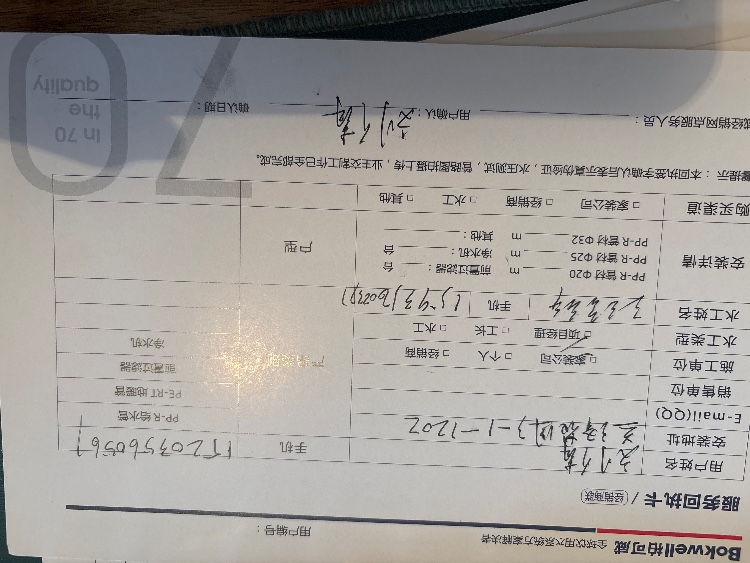 Bokwell柏可威 全球饮用水系统方案解决者
用户编号：
服务回执卡 / 经销商联
用户姓名 手机
安装地址 3-1-1202
E-mail(QQ)
销售单位
施工单位 □ 家装公司 □ 个人 □ 经销商
水工类型 □ 项目经理 □ 工长 □ 水工
水工姓名 手机
产品类别
PP-R 给水管
PE-RT 地暖管
前置过滤器
净水机
安装详情
PP-R 管材 Φ20 m 前置过滤器： 台
PP-R 管材 Φ25 m 净水机： 台
PP-R 管材 Φ32 m 其他：
户型
购买渠道 □ 家装公司 □ 经销商 □ 水工 □ 其他
提示：本回执签字确认后表示真伪验证，水压测试，管路图拍摄上传，业主交割工作已全部完成。
经销网点服务人员： 用户确认： 确认日期：
70
In 70
the
quality